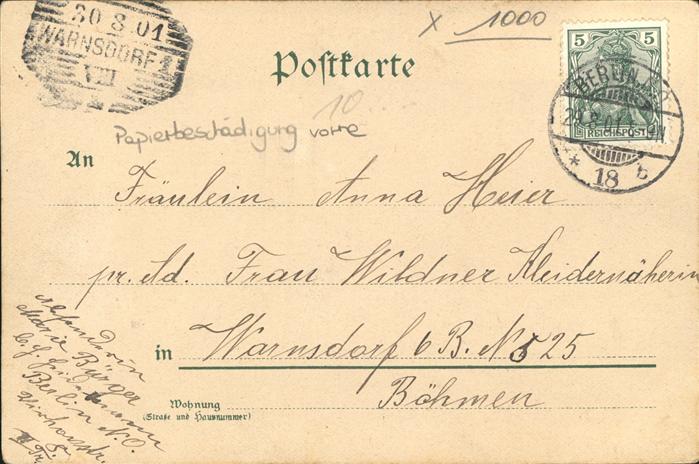 30 8 01
WARNSDORF 1
VIII
× 1000
Postkarte
5 5
REICHSPOST
BERLIN N.O.
29.8.01
* 18 b
10...
Papierbeschädigung vorne
An
Fräulein Anna Heier
pr. Ad. Frau Wildner Kleidernäherin
in Warnsdorf 6 B. N 525
Böhmen
Wohnung
(Straße und Hausnummer)
Absenderin
Marie Bürger
Berlin N.O.
II Tr.